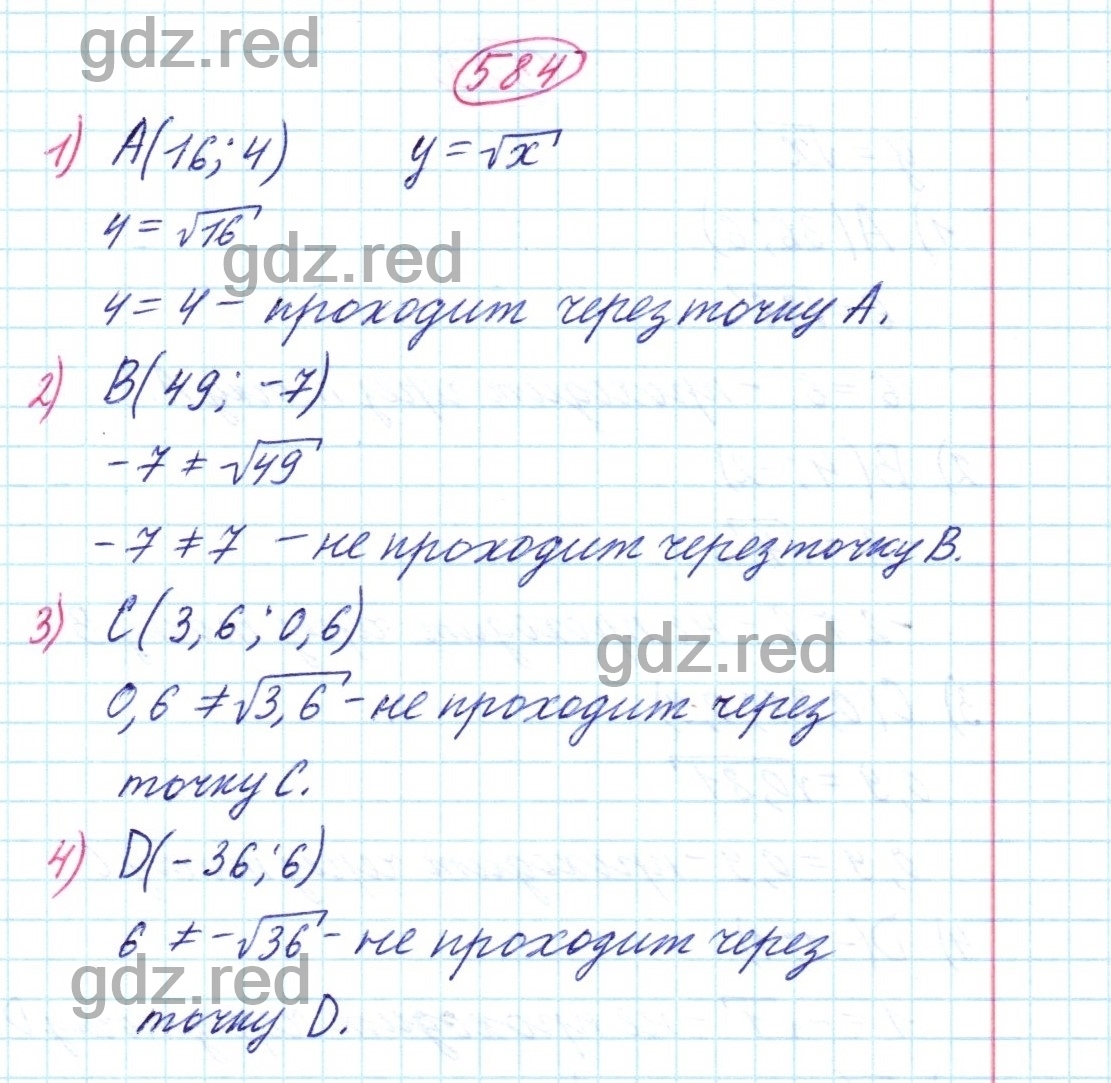 gdz.red
584
1) A(16; 4) y = √x
4 = √16
gdz.red
4 = 4 – проходит через точку A.
2) B(49; -7)
-7 ≠ √49
-7 ≠ 7 – не проходит через точку B.
3) C(3,6; 0,6)
gdz.red
0,6 ≠ √3,6 – не проходит через
точку C.
4) D(-36; 6)
6 ≠ -√36 – не проходит через
gdz.red
точку D.